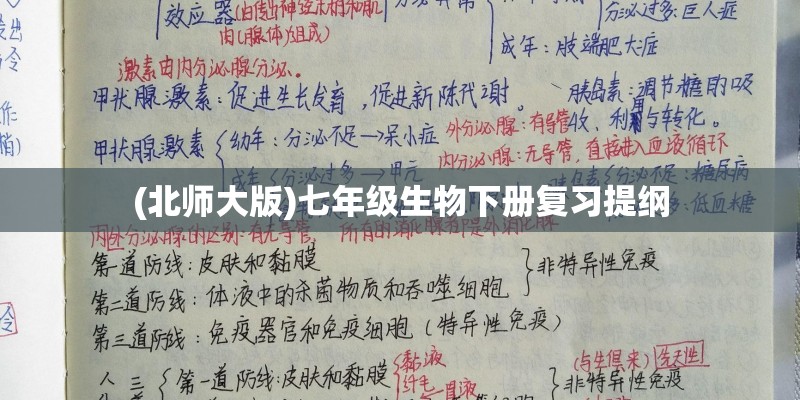 效应器(由传出神经末梢和肌
肉(腺体)组成)
分泌过多:巨人症
成年:肢端肥大症
激素由内分泌腺分泌。
甲状腺激素:促进生长发育,促进新陈代谢。
胰岛素:调节糖的吸
收、利用与转化。
甲状腺激素
幼年:分泌不足→呆小症
外分泌腺:有导管
内分泌腺:无导管,直接进入血液循环
成年:分泌过多→甲亢
分泌不足:糖尿病
多:低血糖
(北师大版)七年级生物下册复习提纲
内外分泌腺的区别:有无导管,
第一道防线:皮肤和黏膜
非特异性免疫
第二道防线:体液中的杀菌物质和吞噬细胞
第三道防线:免疫器官和免疫细胞(特异性免疫)
人 三
第一道防线:皮肤和黏膜
黏液
纤毛
(与生俱来)
先天性
非特异性免疫